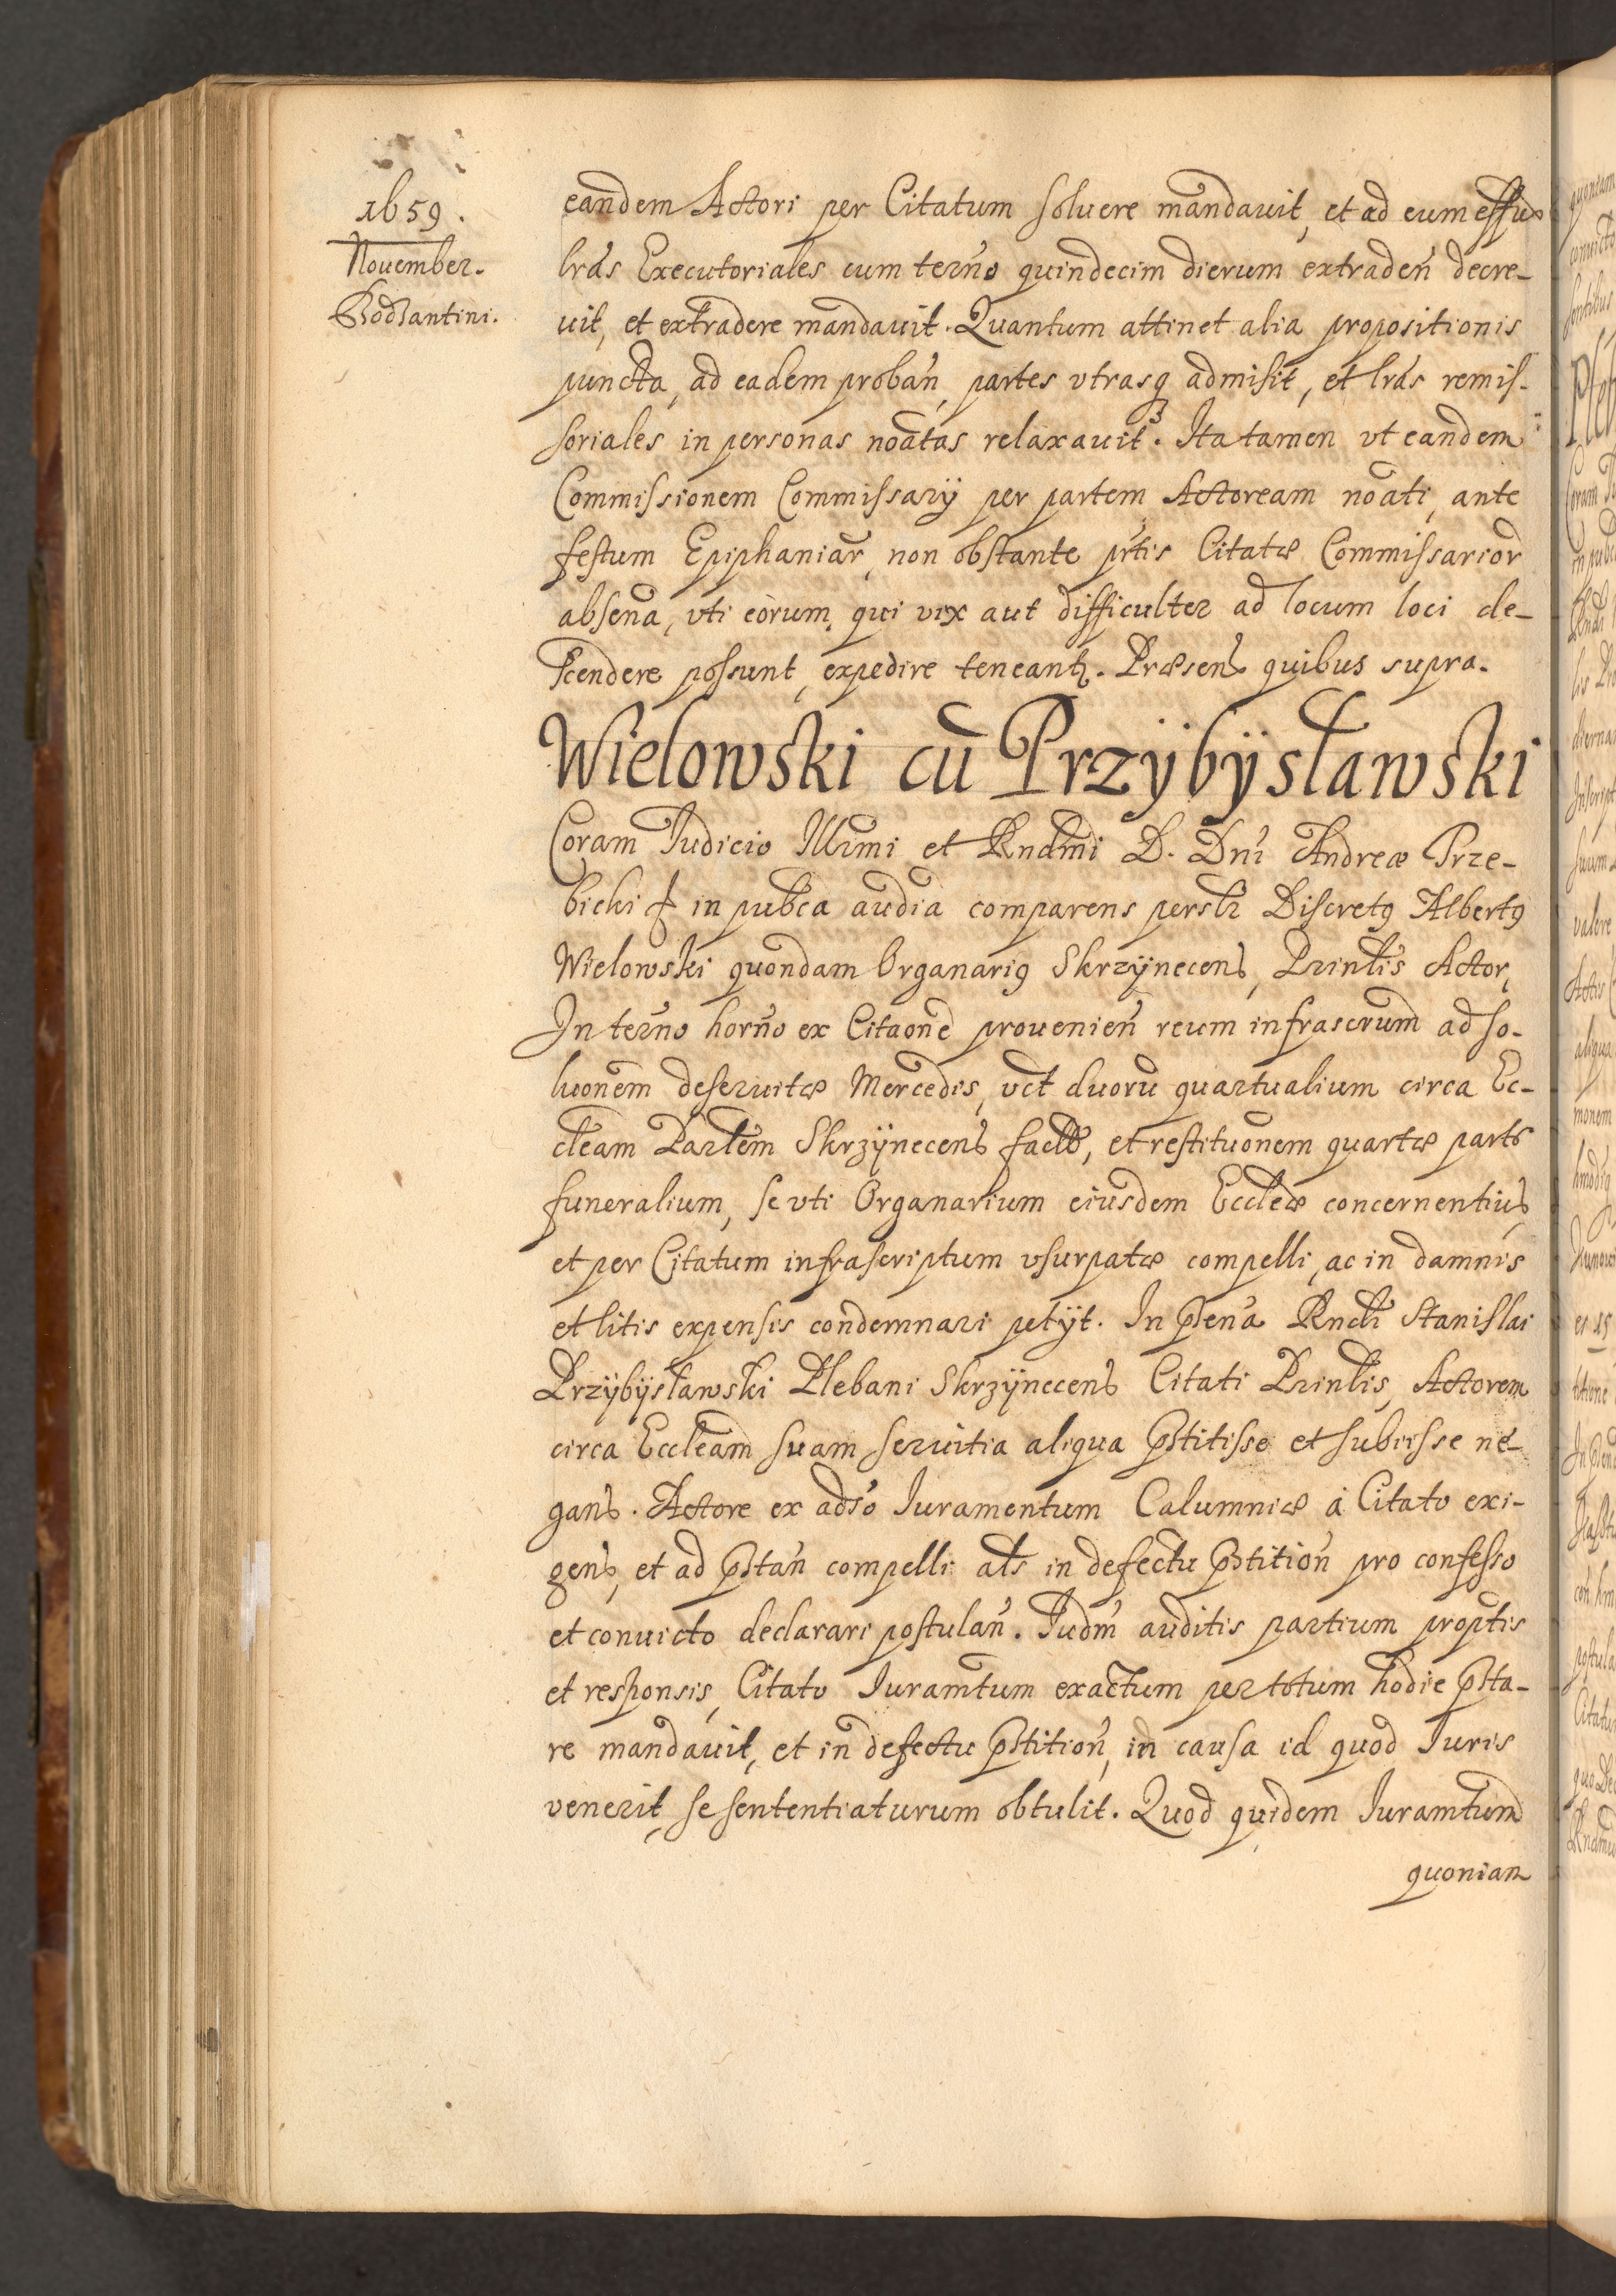 1659.
November.
Bodzantini.
eandem Actori per Citatum soluere mandauit, et ad eum effū
lrās Executoriales cum terño quindecim dierum extradeñ decre-
uit, et extradere mandauit. Quantum attinet alia propositionis
puncta, ad eadem probañ, partes vtrasq admisit, et lrās remis-
soriales in personas noātas relaxauit. Ita tamen vt eandem
Commissionem Commissarÿ per partem Actoream noāti, ante
festum Epiphaniar, non obstante ptis Citatæ Commissarior
absena, vti eorum, qui vix aut difficulter ad locum loci de-
scendere possunt, expedire teneant. Præsens quibus supra.
Wielowski cū Przÿbÿsławski
Coram Iudicio Illrmi et Rndmi D. Dni Andreæ Trze-
bicki in pubca audia comparens persłr Discretg Albertg
Wielowski quondam Organarig Skrzÿnecens, Prinlis Actor,
In terño horño ex Citaone prouenieñ reum infrascrum ad so-
luonem deseruitæ Mercedis, vct duorū quartualium circa Ec-
cleam Parlem Skrzÿnecens factæ, et restituonem quartæ parts
funeralium, se vti Organarium eiusdem Eccleæ concernentius,
et per Citatum infrascriptum vsurpatæ compelli, ac in damnis
et litis expensis condemnari petÿt. In psena Rndi Stanislai
Przÿbÿsławski Plebani Skrzÿnecens Citati Prinlis, Actorem
circa Eccleam suam seruitia aliqua pstitisse et subiisse ne-
gans. Actore ex adso Iuramentum Calumniæ á Citato exi-
gens, et ad pstañ compelli als in defectu pstitioñ pro confesso
et conuicto declarari postulañ. Iudm auditis partium proptis
et responsis, Citato Iuramtum exactum per totum hodie psta-
re mandauit, et in defectu pstitioñ, in causa id quod Iuris
venerit, se sententiaturum obtulit. Quod quidem Iuramtum
quoniam